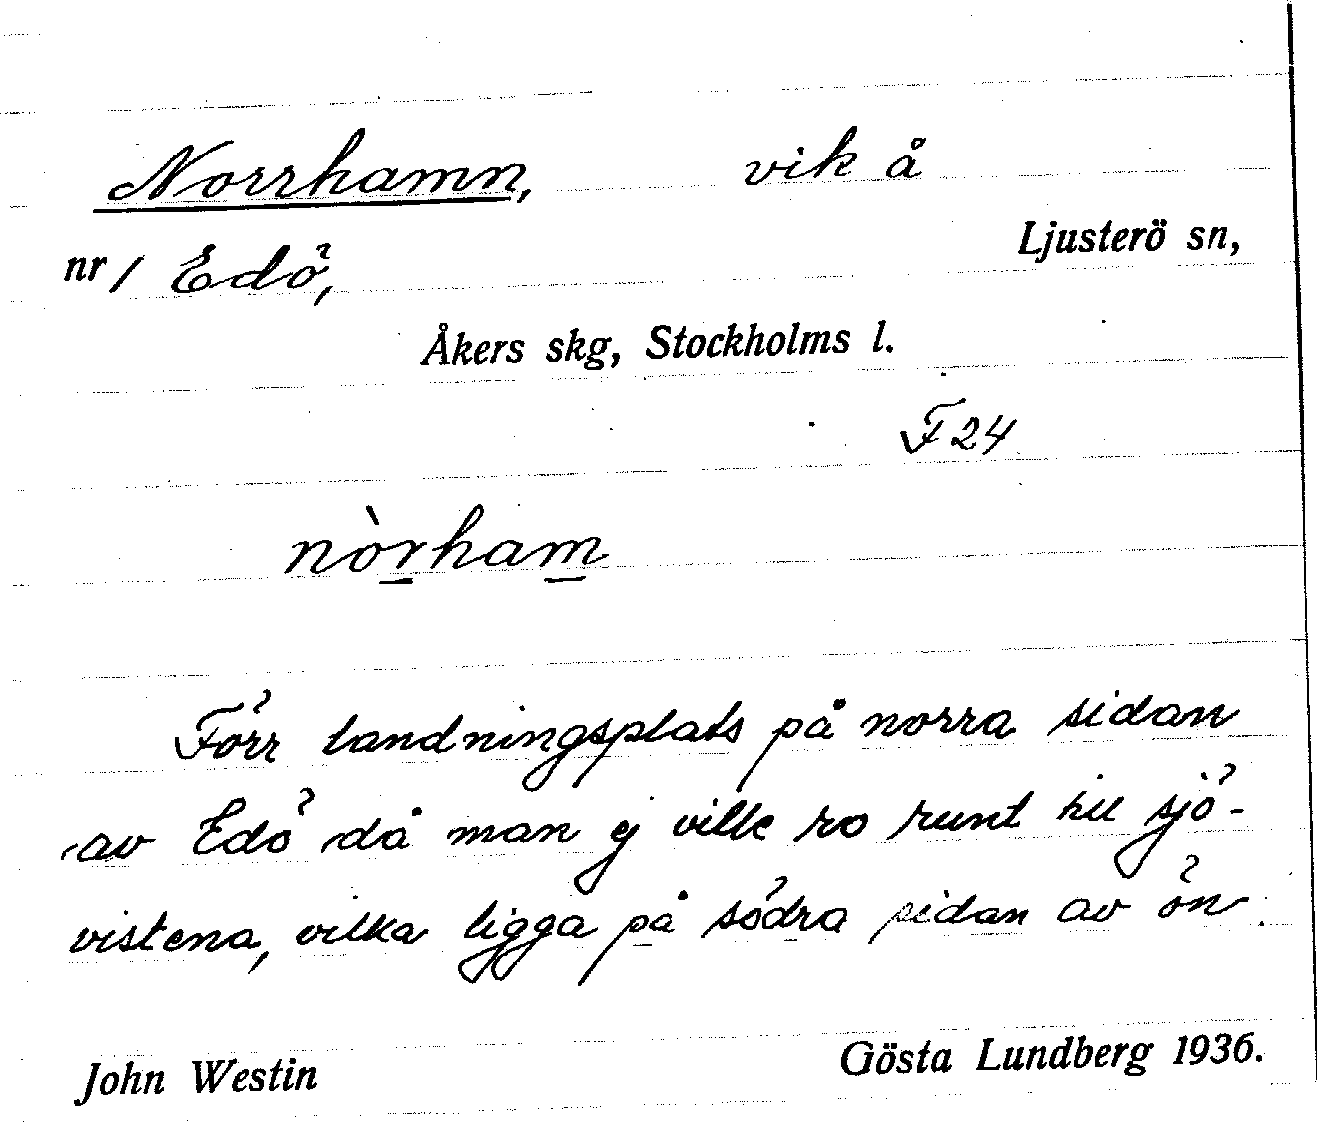 Norrhamn, vik å
nr/ Edö, Ljusterö sn,
Åkers skg, Stockholms l.
F 24
nòrham
Förr landningsplats på norra sidan
av Edö då man ej ville ro runt till sjö-
vistena, vilka ligga på södra sidan av ön.
John Westin Gösta Lundberg 1936.